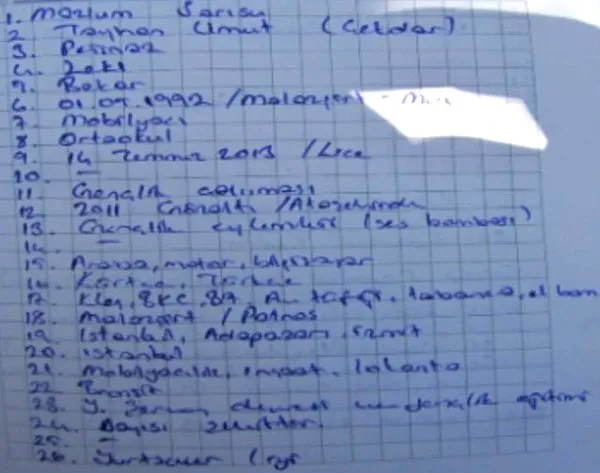 1. Mazlum Sarısu
2 Tayhan Umut (Geldar)
3. Perinaz
4. Zeki
5. Bekar
6. 01.07.1992 /malazgirt -
7 Mobilyacı
8. Ortaokul
9. 14 Temmuz 2013 /Lice
10. —
11. Gençlik çalışması
12 2011 Gençlik /
13. Gençlik eylemleri (ses bombası)
14. —
15. Araba, motor, bilgisayar
16. Kürtçe, Türkçe
17. Kleş, BKC, tabanca, el bom
18. Malazgirt / Patnos
19. İstanbul, Adapazarı, İzmit
20. İstanbul
21. mobilyacılık, inşaat, lokanta
22
23. gençlik eğitimi
24. Dayısı
25. —
26. Yurtsever